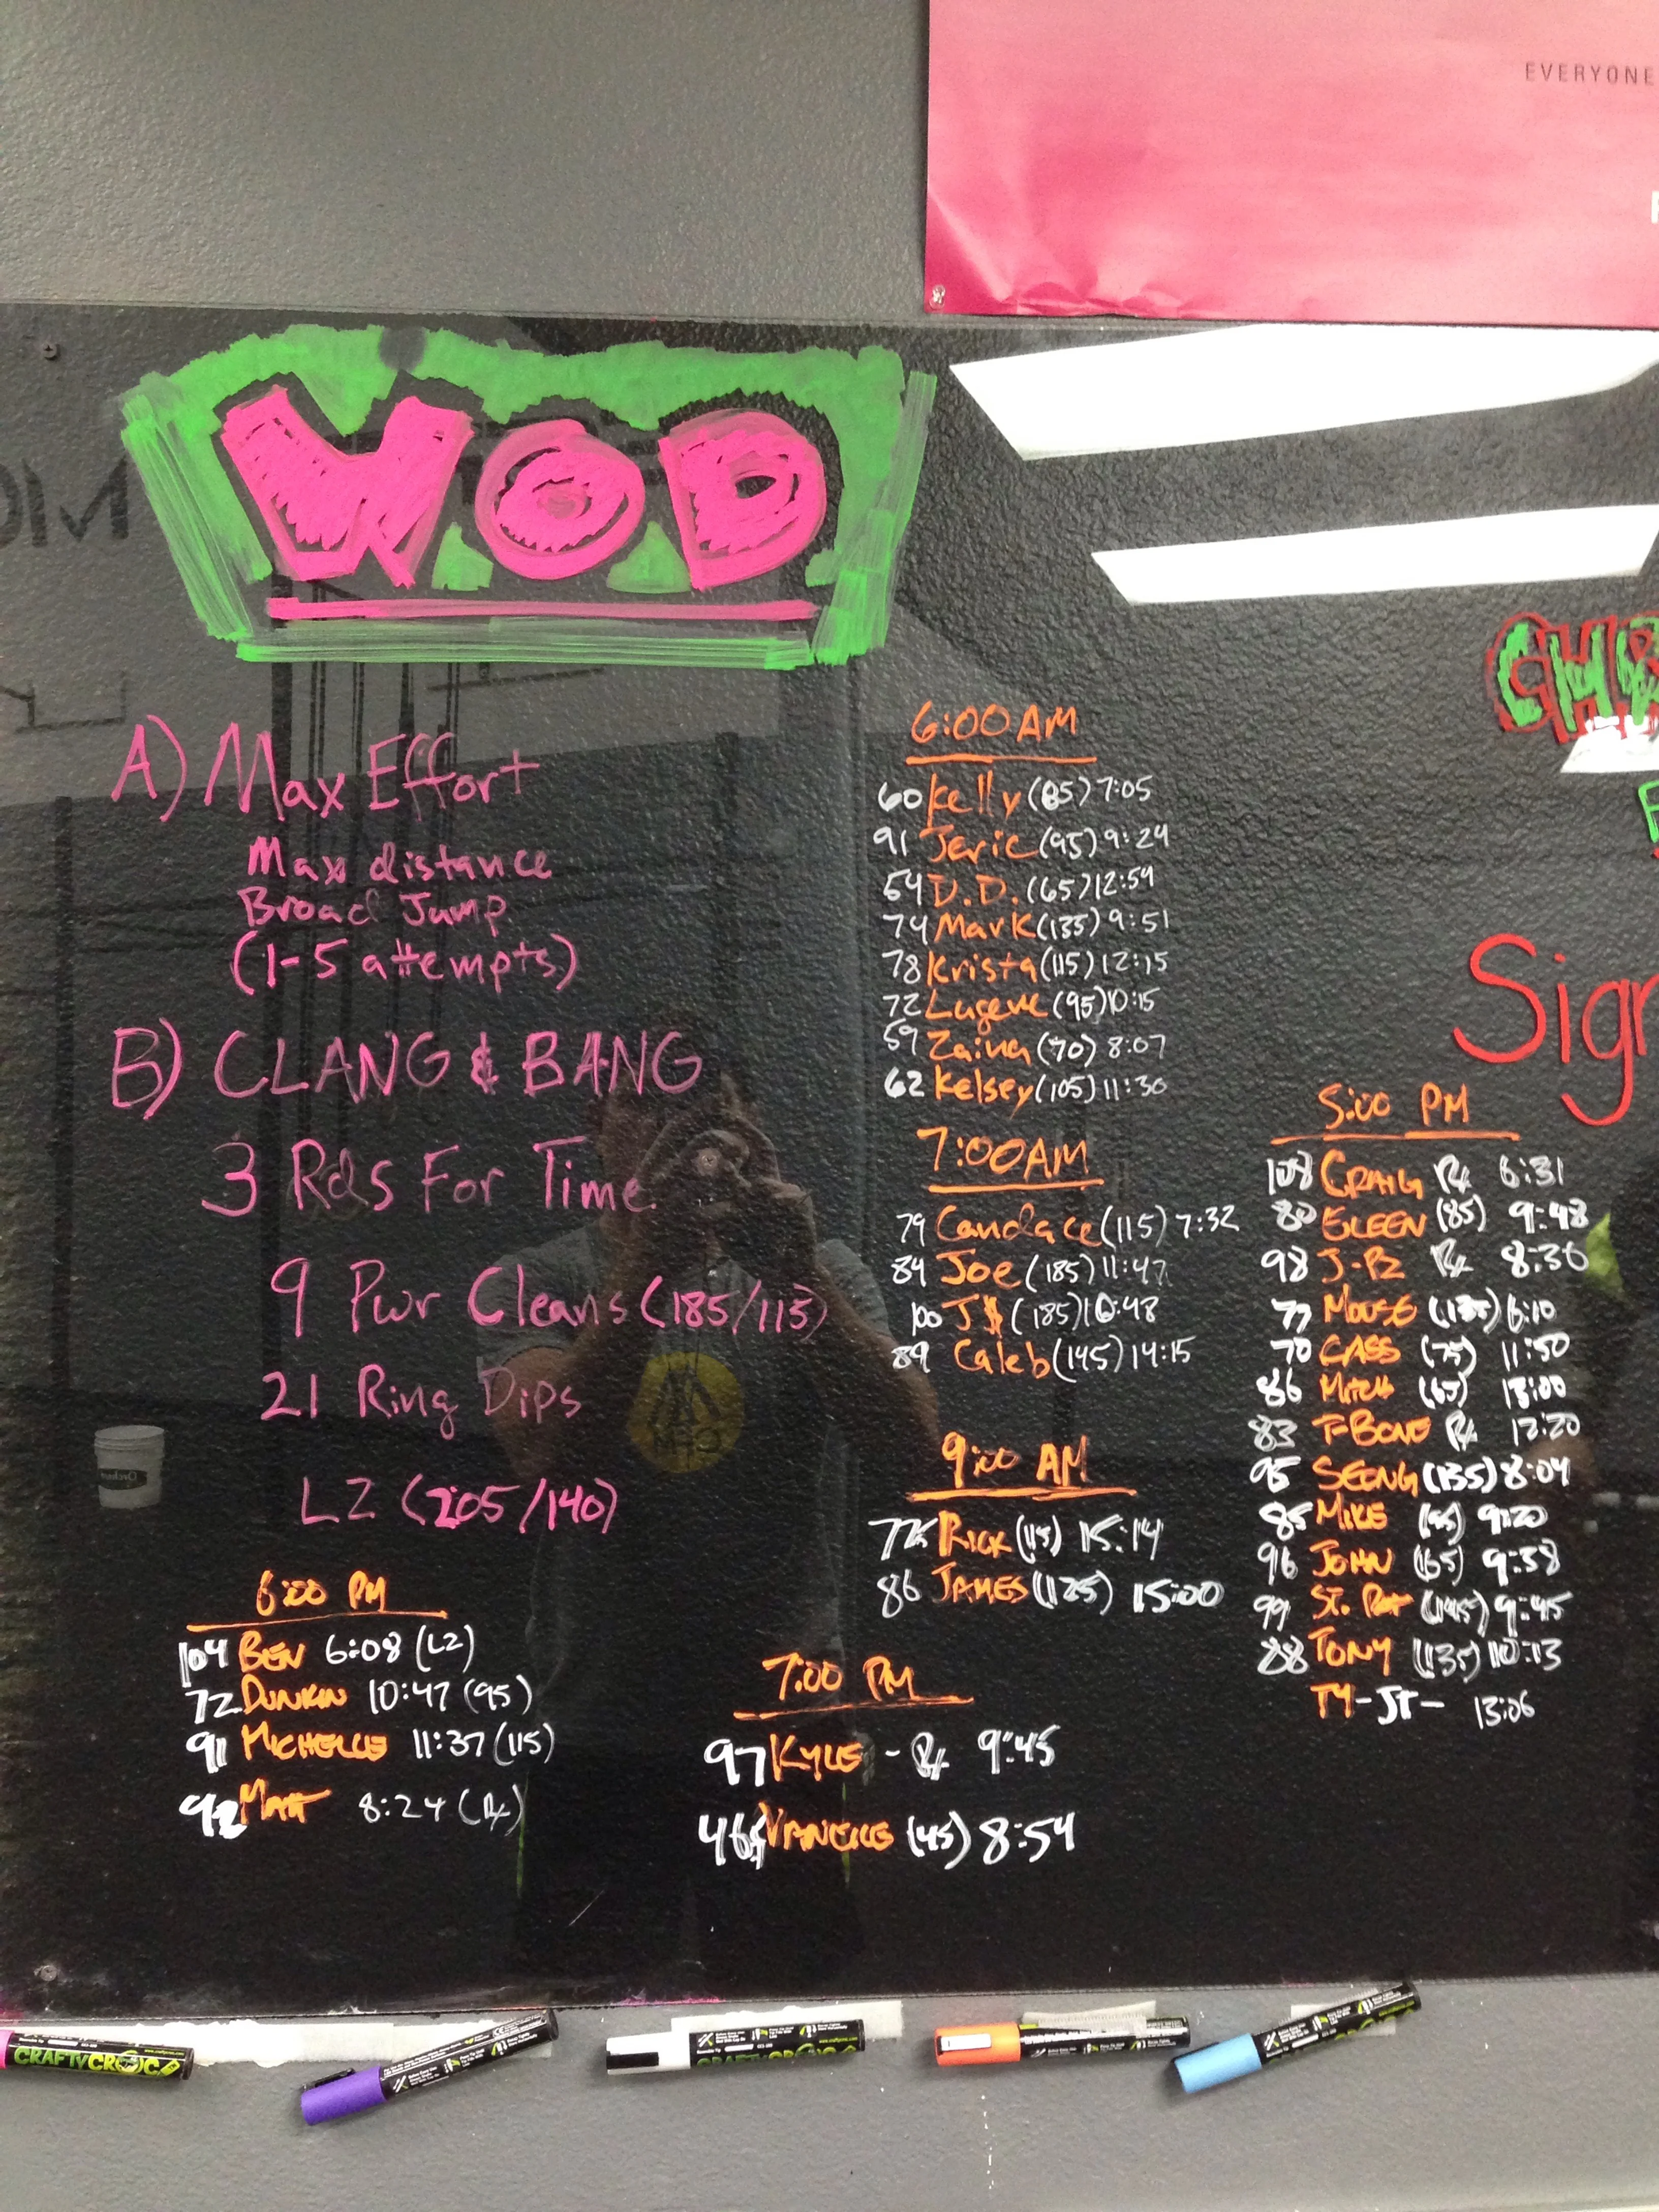 EVERYONE
WOD
A) Max Effort
Max distance
Broad Jump
(1-5 attempts)
B) CLANG & BANG
3 Rds For Time
9 Pwr Cleans (185/115)
21 Ring Dips
L2 (205/140)
6:00 PM
104 BEN 6:08 (L2)
72 DUNKIN 10:47 (95)
91 MICHELLE 11:37 (115)
92 MATT 8:24 (Rx)
6:00 AM
60 Kelly (85) 7:05
91 Jeric (95) 9:24
54 D.D. (65) 12:59
74 Mark (135) 9:51
78 Krista (115) 12:15
72 Lugene (95) 10:15
59 Zaina (70) 8:07
62 Kelsey (105) 11:30
7:00 AM
79 Candace (115) 7:32
84 Joe (185) 11:47
100 J$ (185) 10:48
89 Caleb (145) 14:15
9:00 AM
RICK (115) 15:14
86 JAMES (125) 15:00
7:00 PM
97 KYLE - Rx 9:45
46 (45) 8:54
Sign
5:00 PM
108 CRAIG Rx 6:31
80 EILEEN (85) 9:48
98 J-PZ Rx 8:30
77 MOUSE (135) 6:10
70 CASS (75) 11:50
86 MITCH (65) 13:00
83 T-BONE Rx 12:20
95 SEONG (135) 8:04
85 MIKE (95) 9:20
96 JOHN (165) 9:38
99 ST. PAT (145) 9:45
88 TONY (135) 10:13
TY-JT- 13:06
CRAFTY CROC